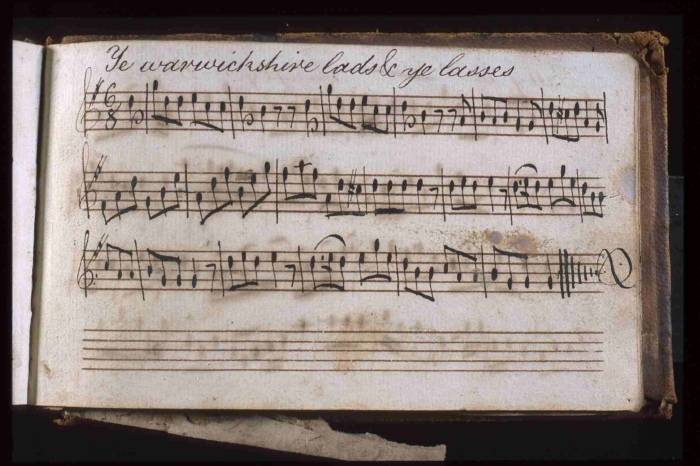 Ye warwickshire lads & ye lasses
6
8